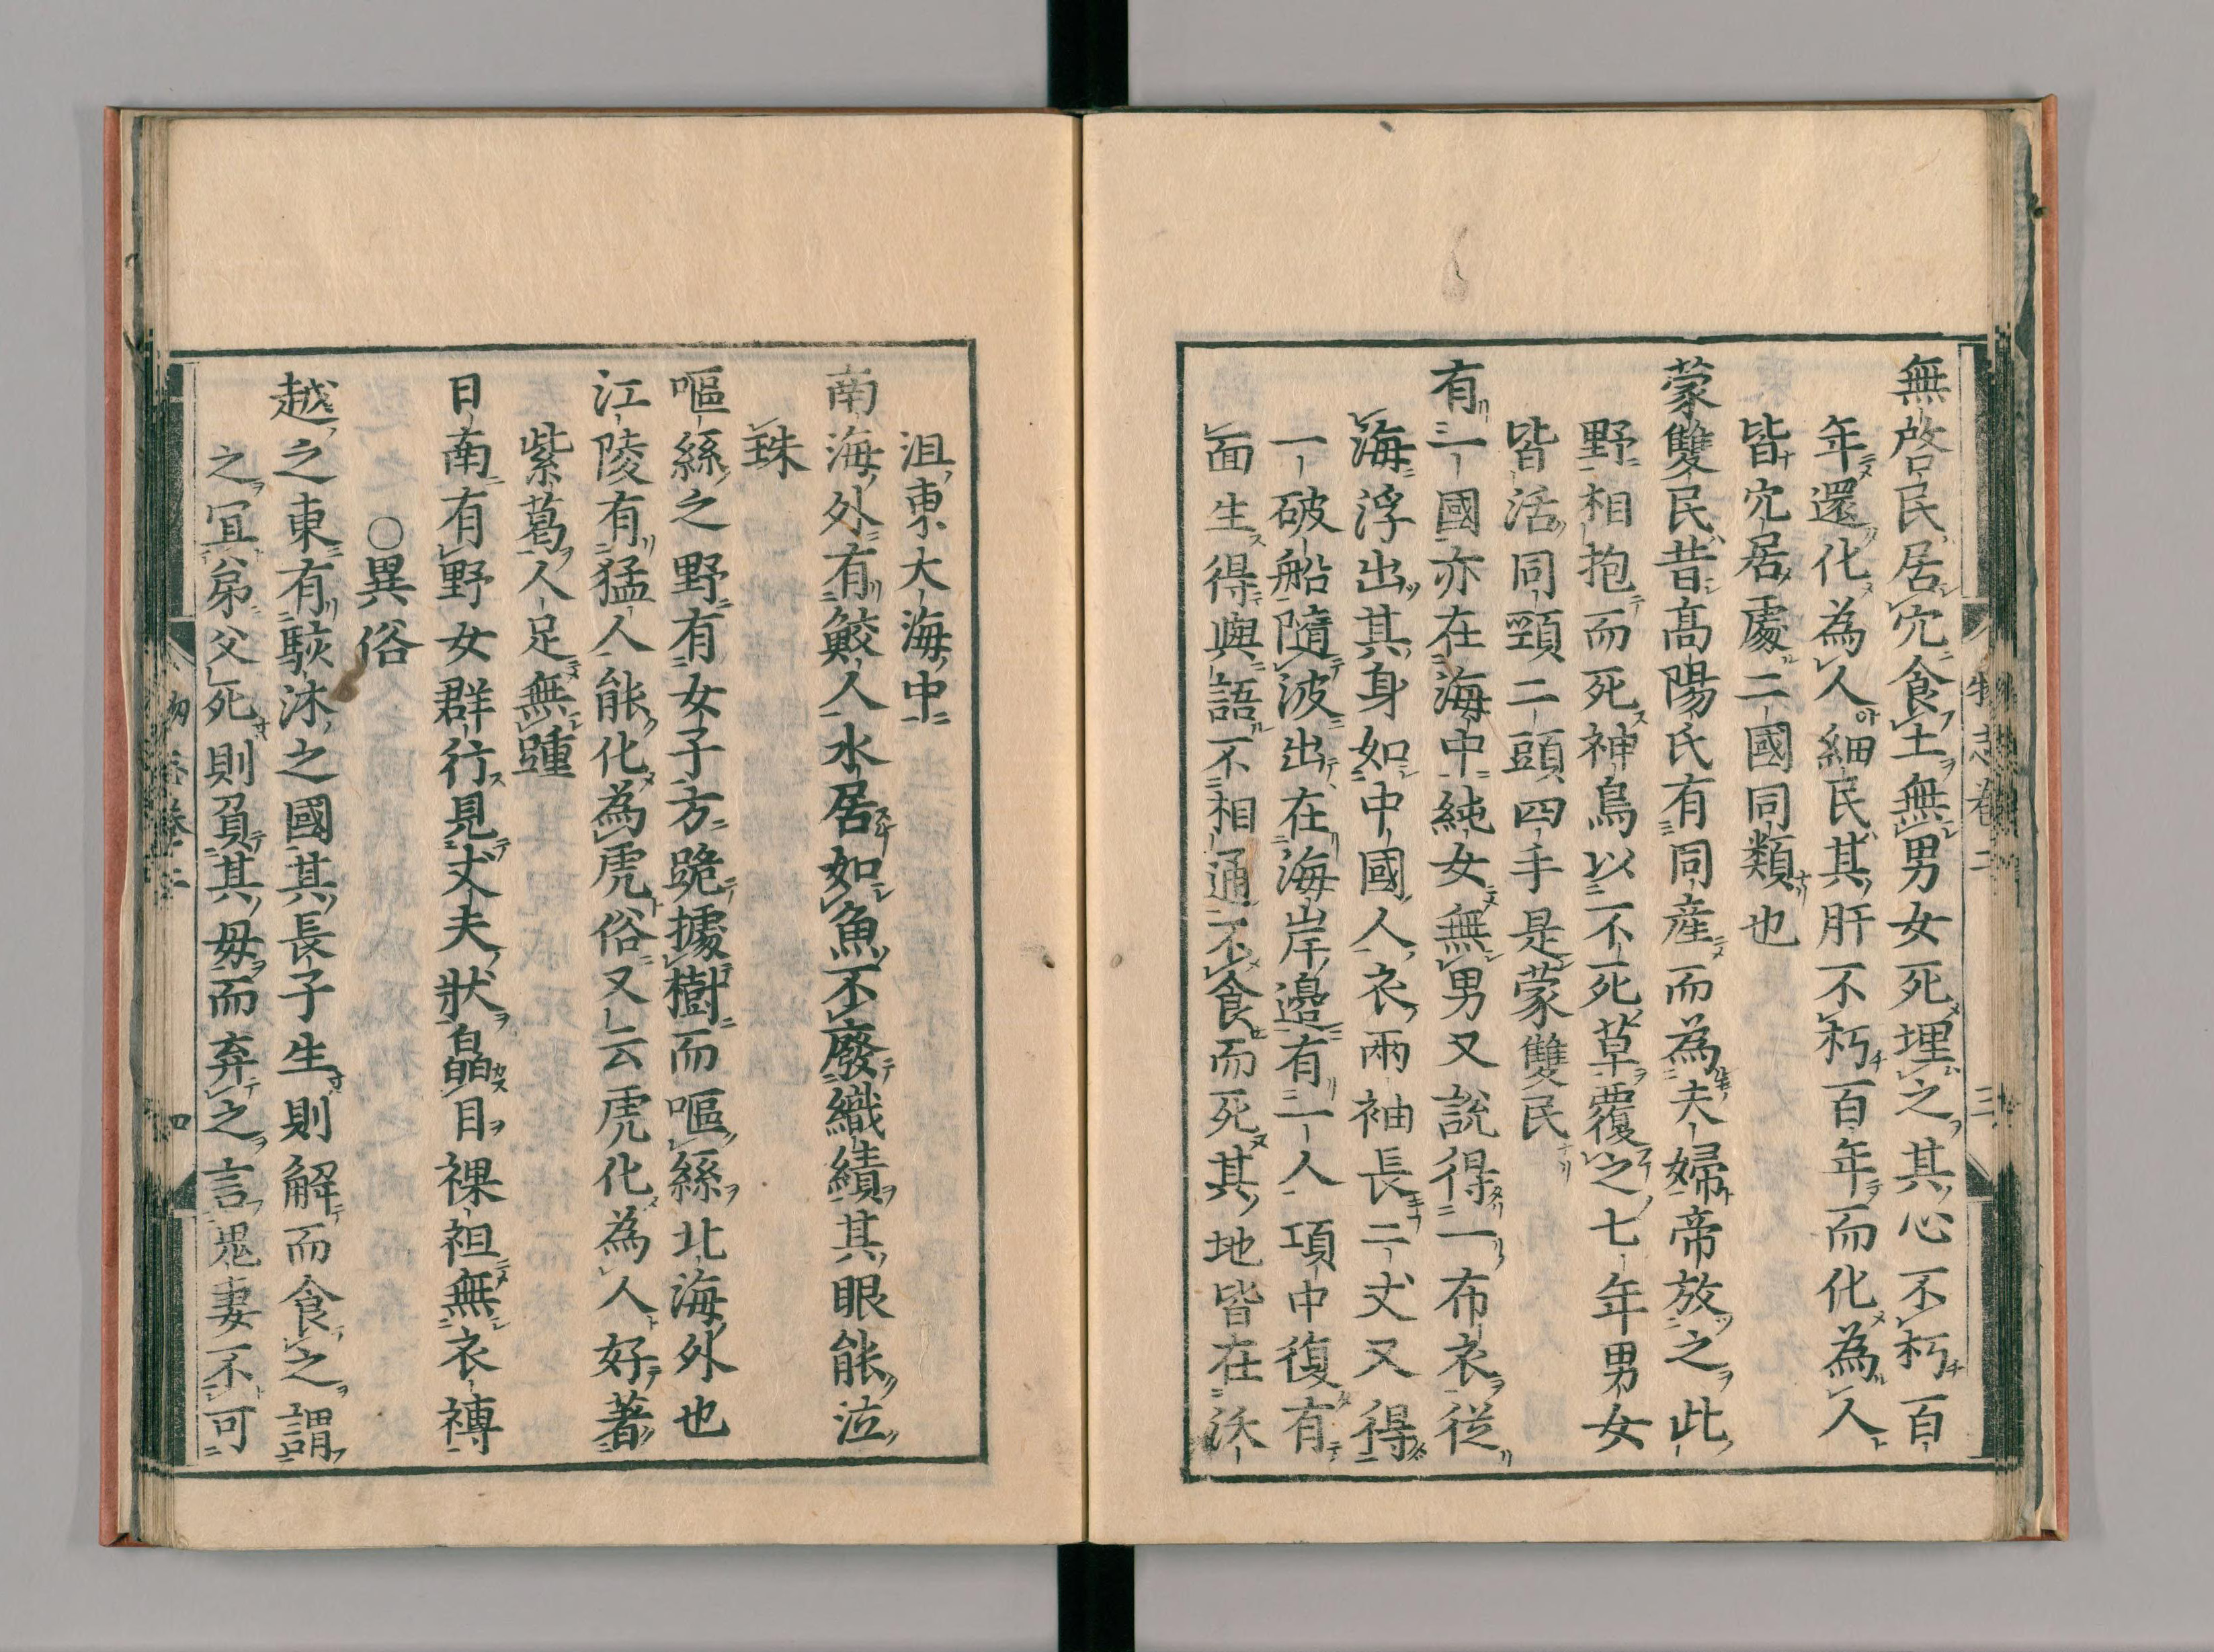 無啓民居穴食土無男女死埋之其心不朽百
年還化為人細民其肝不朽百年而化為人
皆穴居處二國同類也
蒙雙民昔高陽氏有同産而為夫婦帝放之此
野相抱而死神鳥以不死草覆之七年男女
皆活同頸二頭四手是蒙雙民
有一國亦在海中純女無男又說得一布衣從
海浮出其身如中國人衣兩袖長二丈又得
一破船隨波出在海岸邊有一人項中復有
面生得與語不相通不食而死其地皆在沃
沮東大海中
南海外有鮫人水居如魚不廢織績其眼能泣
珠
嘔絲之野有女子方跪據樹而嘔絲北海外也
江陵有猛人能化為虎俗又云虎化為人好著
紫葛人足無踵
日南有野女群行見丈夫狀皛目裸袒無衣襠
○異俗
越之東有駭沐之國其長子生則解而食之謂
之冝弟父死則負其母而弃之言鬼妻不可